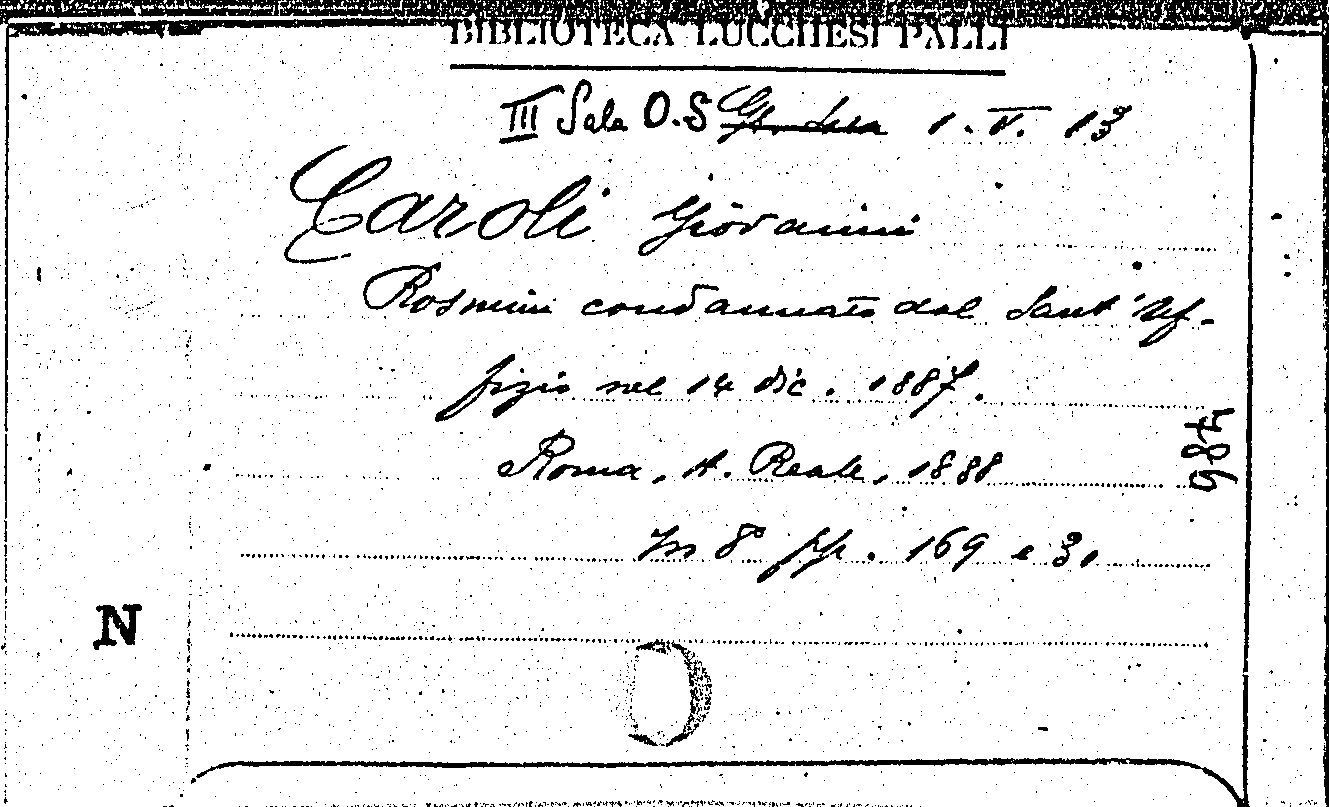 BIBLIOTECA LUCCHESI PALLI
III Sala O.S 1. V. 13
Caroli Giovanni
Rosmini condannato dal Sant'Uf-
fizio nel 14 dic. 1887.
Roma, A. Reale, 1888
In 8° pp. 169 e 31
986
N